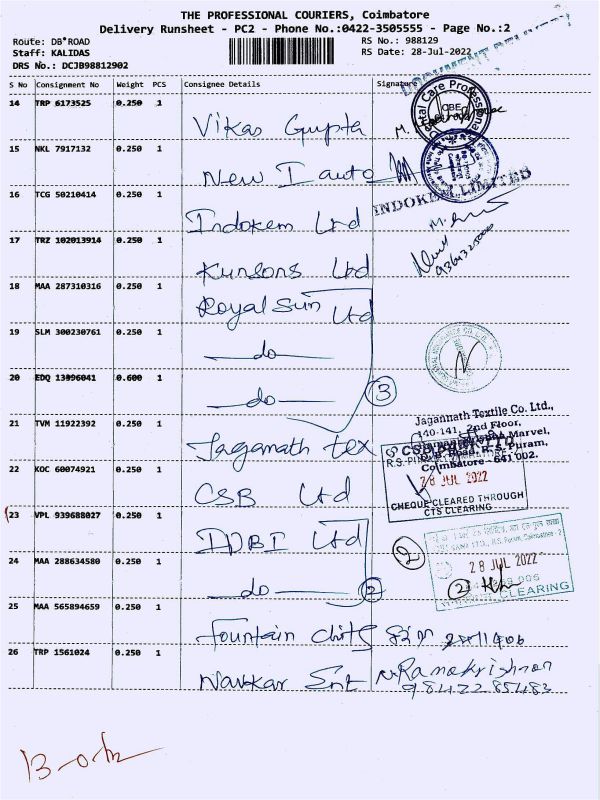 THE PROFESSIONAL COURIERS, Coimbatore
Delivery Runsheet - PC2 - Phone No.:0422-3505555 - Page No.:2
Route: DB*ROAD
Staff: KALIDAS
DRS No.: DCJB98812902
RS No.: 988129
RS Date: 28-Jul-2022
S No Consignment No Weight PCS Consignee Details Signature
14 TRP 6173525 0.250 1 Vikas Gupta
15 NKL 7917132 0.250 1 New I auto
INDOKEM LIMITED
16 TCG 50210414 0.250 1 Indokem Ltd
17 TRZ 102013914 0.250 1 Kunsons Ltd
18 MAA 287310316 0.250 1 Royal Sun Ltd
19 SLM 300230761 0.250 1 do
20 EDQ 13996041 0.600 1 do 3
21 TVM 11922392 0.250 1 Jagannath tex
Jagannath Textile Co. Ltd.,
140-141, 2nd Floor,
Marvel,
D.B. Road, R.S. Puram,
Coimbatore - 641 002.
22 KOC 60074921 0.250 1 CSB Ltd
28 JUL 2022
CHEQUE CLEARED THROUGH
CTS CLEARING
23 VPL 939688027 0.250 1 IDBI Ltd
2
28 JUL 2022
24 MAA 288634580 0.250 1 do 2
CLEARING
25 MAA 565894659 0.250 1 Fountain chits
26 TRP 1561024 0.250 1 Navkar Ent N. Ramakrishnan